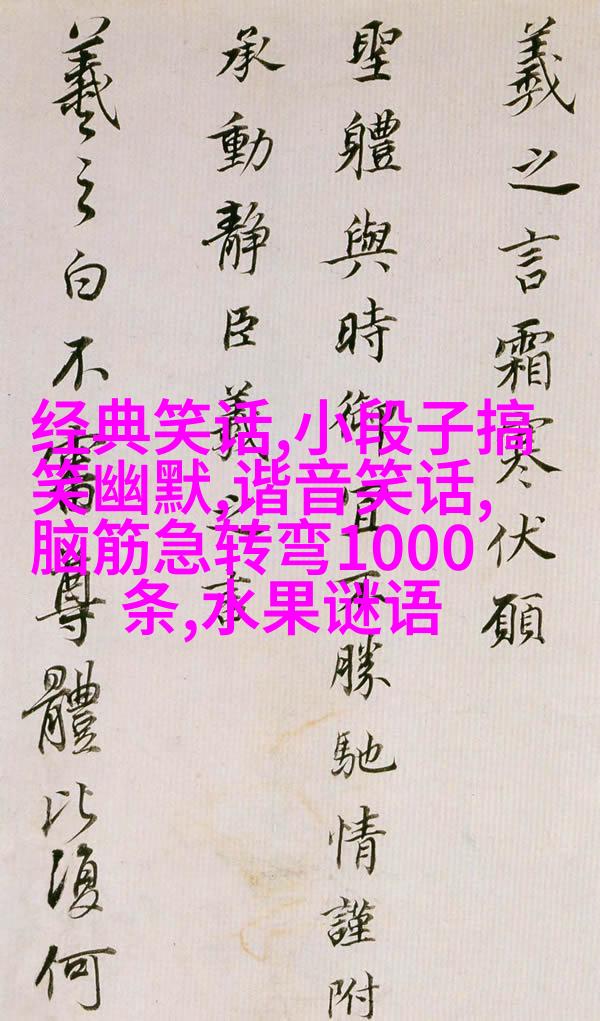 羲之言霜寒伏願
聖體與時御宜不勝馳情謹附
承動靜臣羲之言
羲之白不審尊體比復何
经典笑话,小段子搞
笑幽默,谐音笑话,
脑筋急转弯1000
条,水果谜语